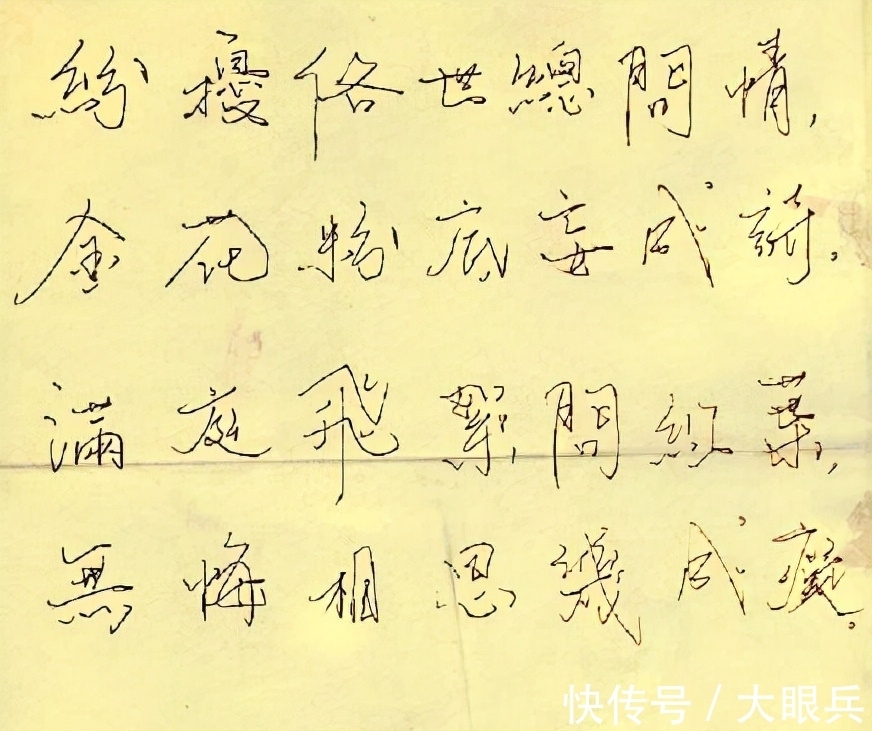 紛擾俗世總問情，
金花粉底妄成詩。
滿庭飛絮問紅葉，
無悔相思幾成癡。
快传号 / 大眼兵